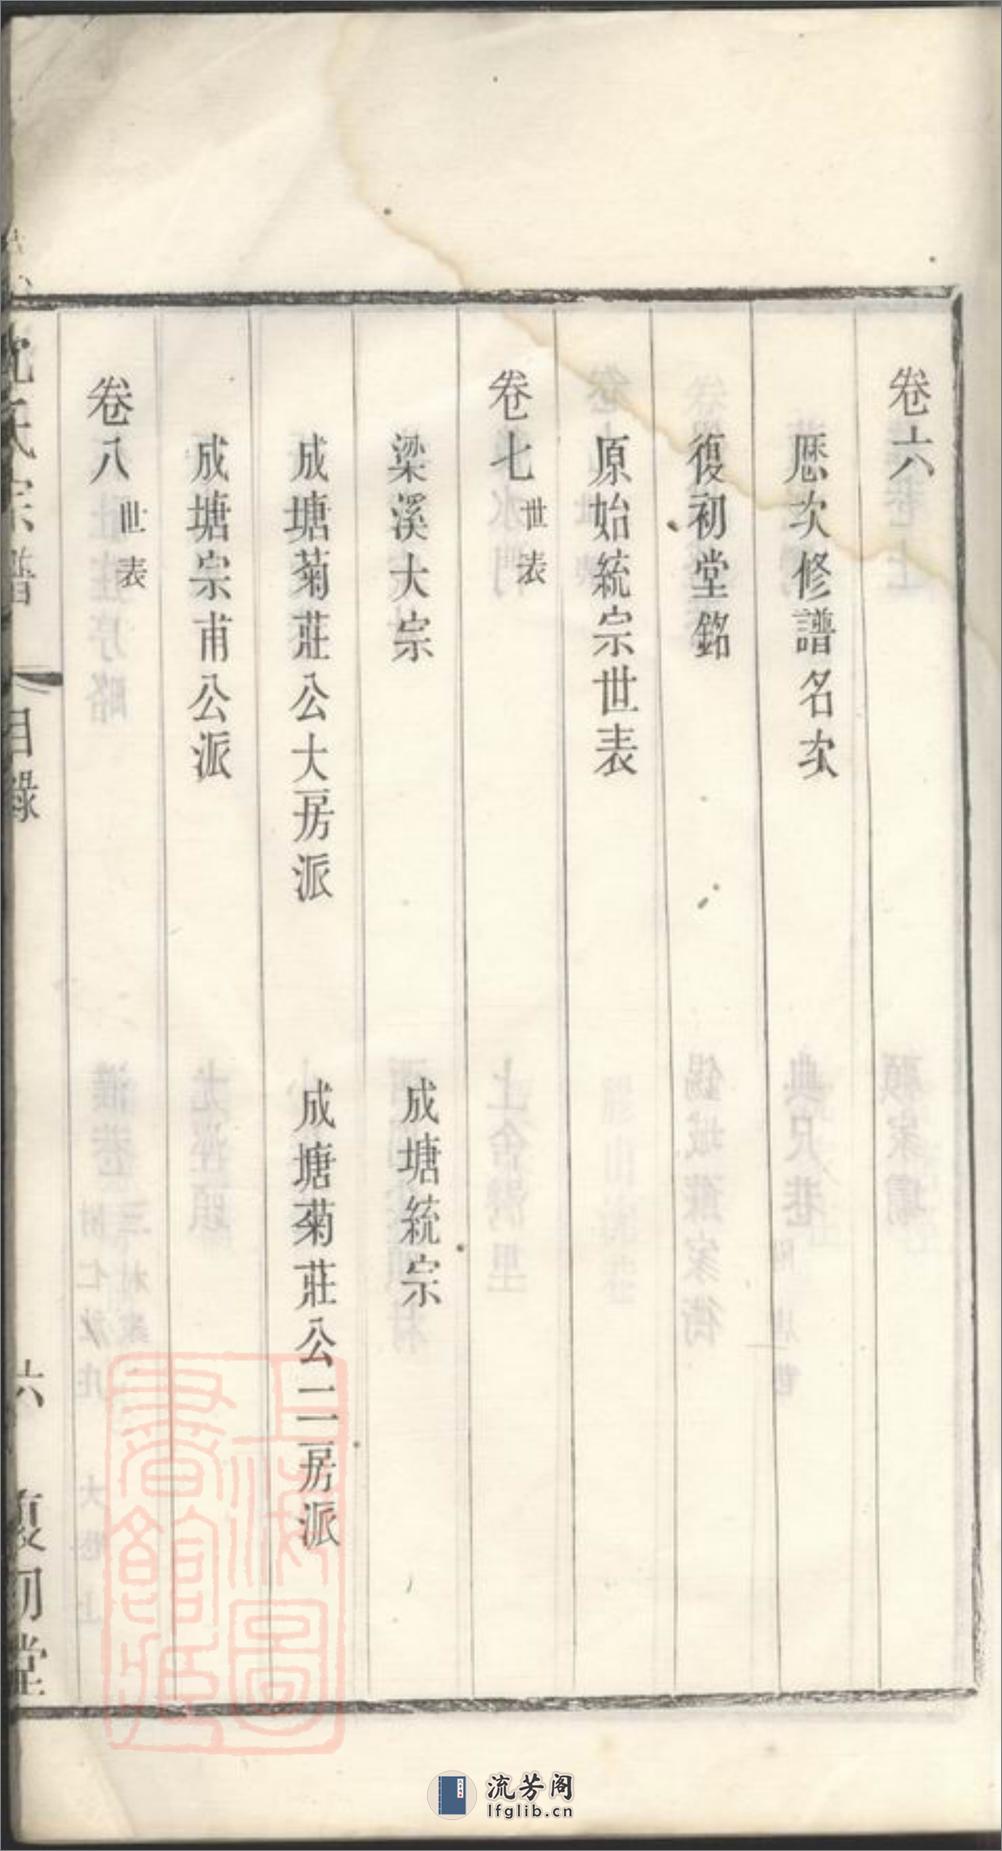 卷六
歷次修譜名次
復初堂銘
原始統宗世表
卷七 世表
梁溪大宗 成塘統宗
成塘菊莊公大房派 成塘菊莊公二房派
成塘宗甫公派
卷八 世表
氏宗譜 目錄 六 復初堂
上海圖書館藏
流芳阁
lfglib.cn